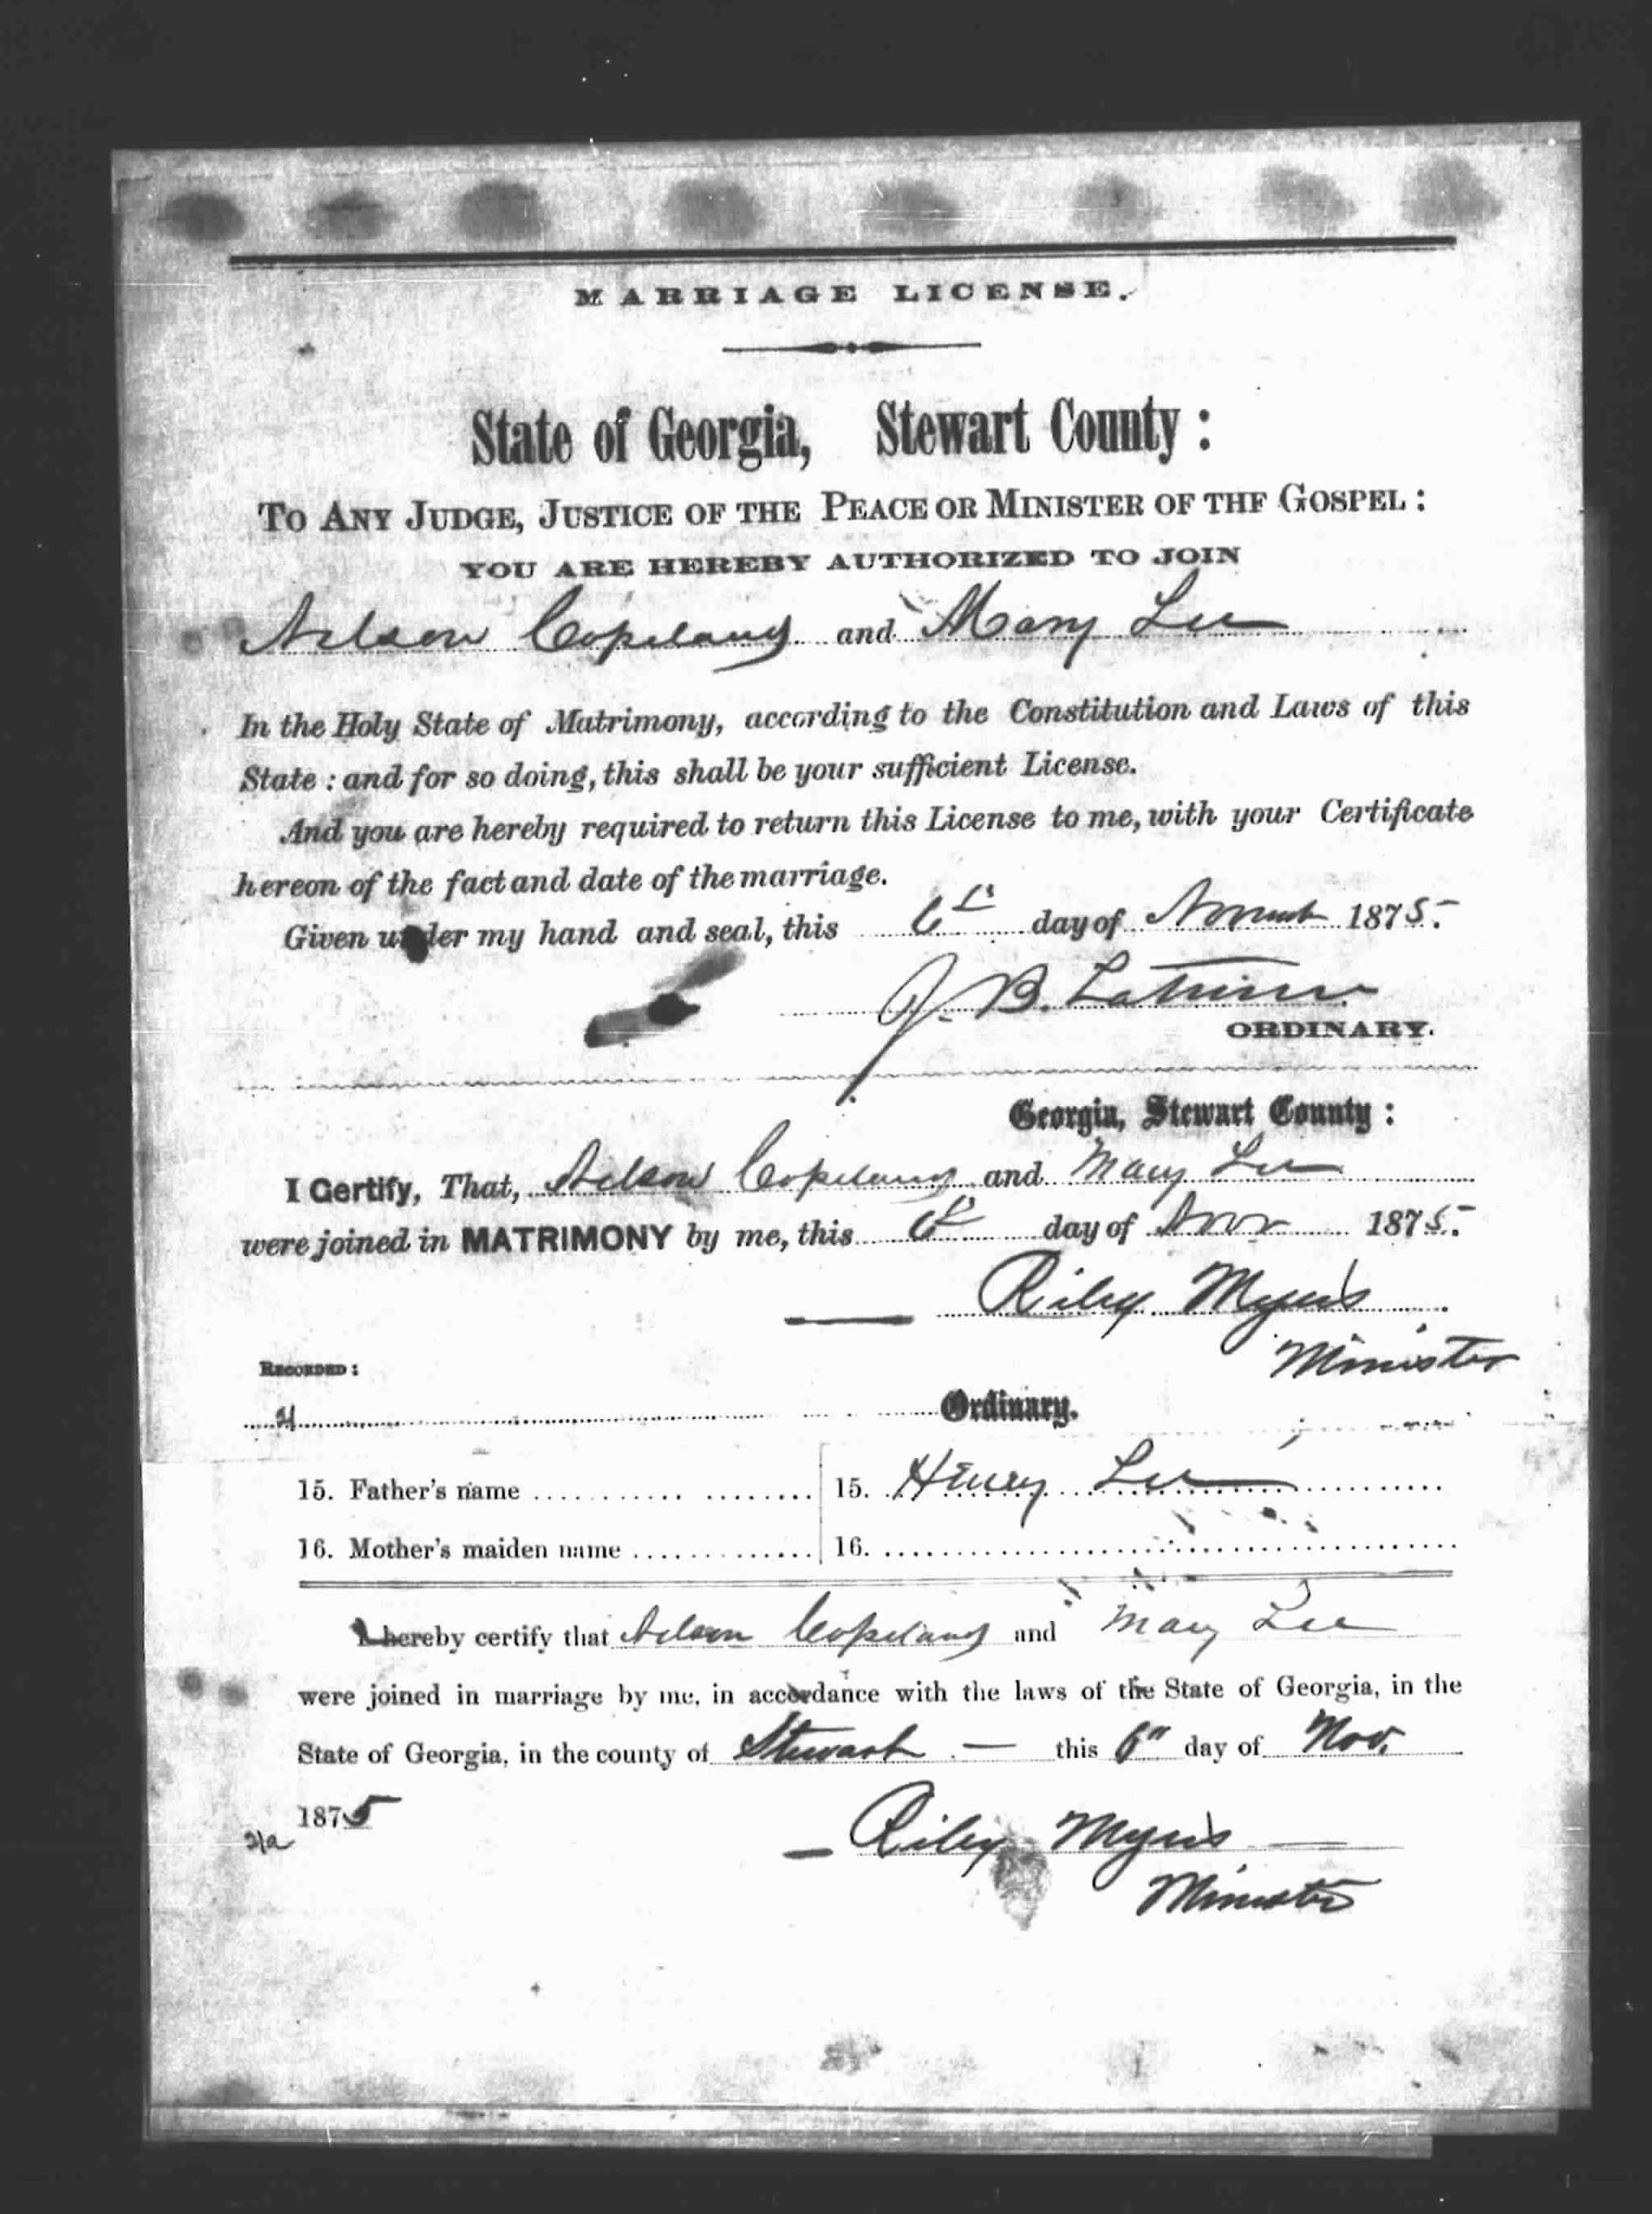 MARRIAGE LICENSE.
State of Georgia, Stewart County :
To Any Judge, Justice of the Peace or Minister of thf Gospel :
YOU ARE HEREBY AUTHORIZED TO JOIN
Nelson Copeland and Mary Lee
In the Holy State of Matrimony, according to the Constitution and Laws of this
State : and for so doing, this shall be your sufficient License.
And you are hereby required to return this License to me, with your Certificate
hereon of the fact and date of the marriage.
Given under my hand and seal, this 6th day of Novemb 1875.
J. B. Latimer
ORDINARY.
Georgia, Stewart County :
I Certify, That, Nelson Copeland and Mary Lee
were joined in MATRIMONY by me, this 6th day of Nov 1875.
Riley Myers
Minister
Recorded :
Ordinary.
15. Father's name 15. Henry Lee
16. Mother's maiden name 16.
I hereby certify that Nelson Copeland and Mary Lee
were joined in marriage by me, in accordance with the laws of the State of Georgia, in the
State of Georgia, in the county of Stewart — this 6" day of Nov.
1875
Riley Myers
Minister